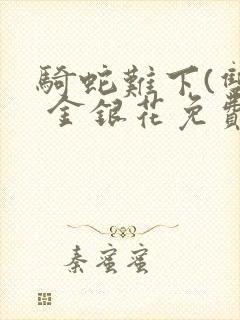 騎蛇難下(雙
金銀花免費
秦蜜蜜